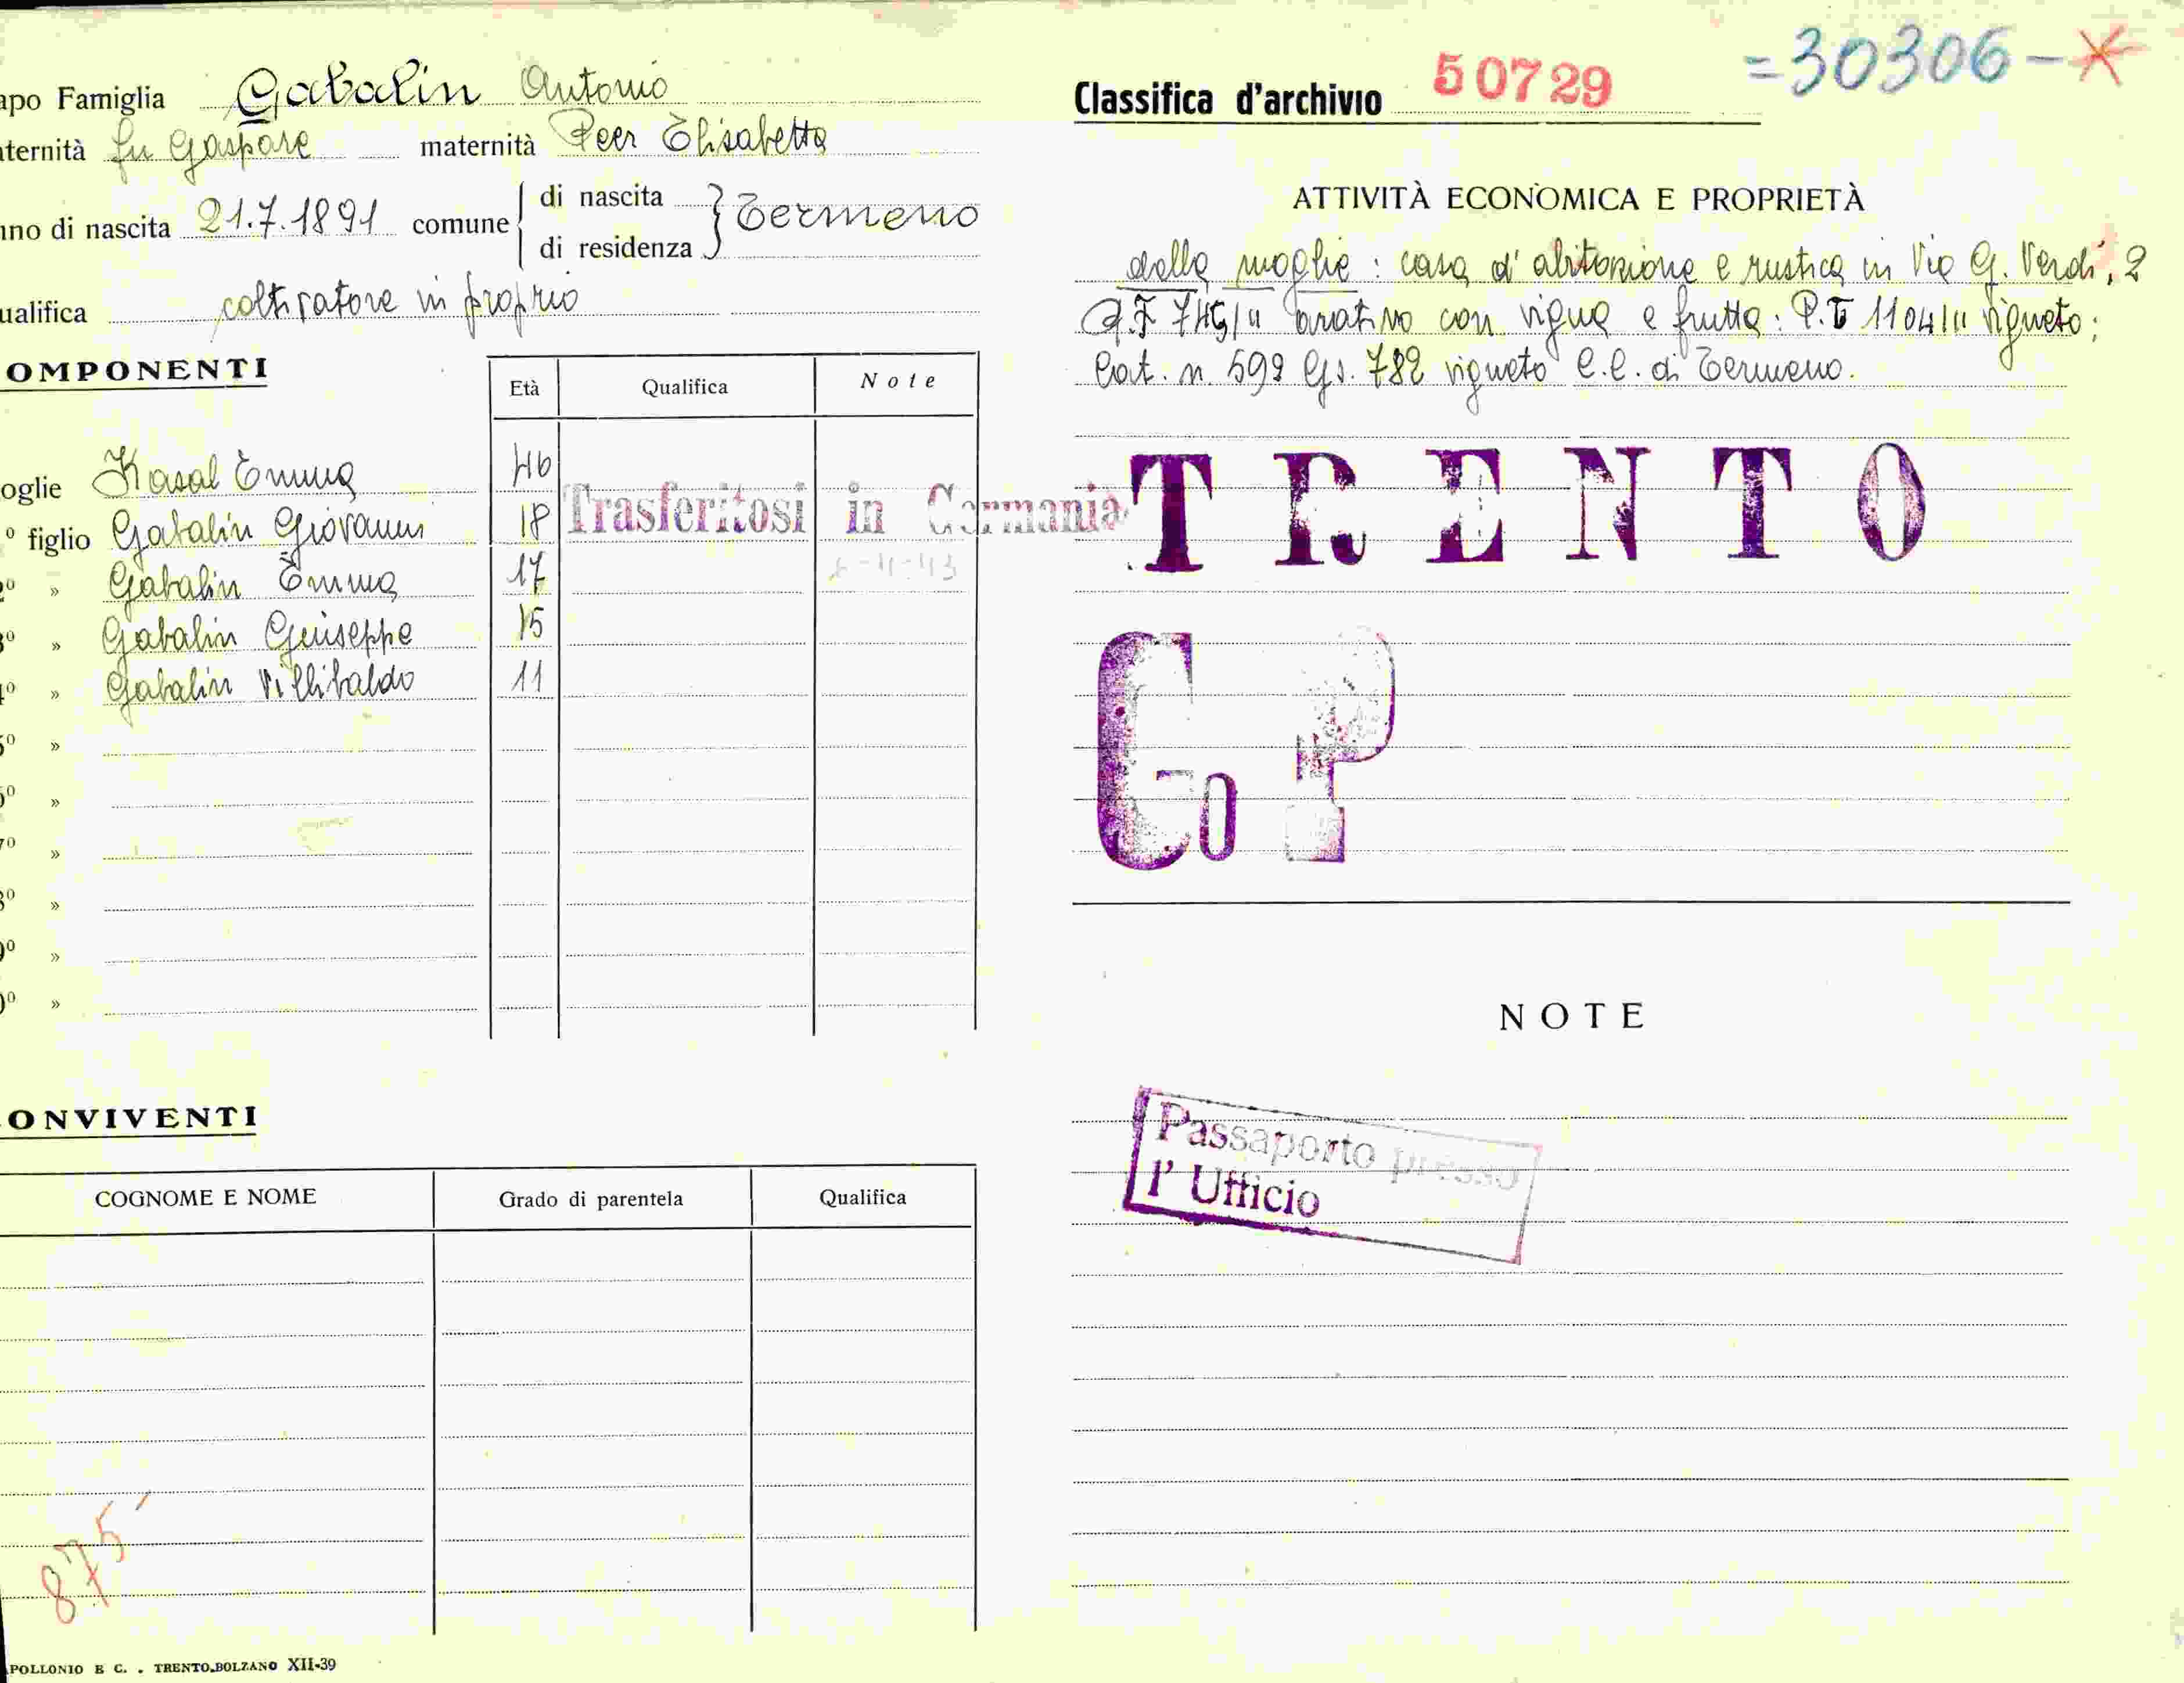 apo Famiglia Gabalin Antonio
ternità fu Gaspare maternità Peer Elisabetta
nno di nascita 21.7.1891 comune di nascita Termeno
di residenza
ualifica coltivatore in proprio
OMPONENTI
Età Qualifica Note
oglie Kasal Emma 46
º figlio Gabalin Giovanni 18
Trasferitosi in Germania
º » Gabalin Emma 17
3º » Gabalin Giuseppe 15
º » Gabalin Villibaldo 11
5º »
º »
7º »
8º »
9º »
0º »
ONVIVENTI
COGNOME E NOME Grado di parentela Qualifica
875
POLLONIO E C. . TRENTO-BOLZANO XII-39
Classifica d'archivio 50729 =30306-
ATTIVITÀ ECONOMICA E PROPRIETÀ
della moglie : casa d'abitazione e rustica in Via G. Verdi, 2
P.T 745/II arativo con vigna e frutta: P.T 1104/II vigneto;
Cat. n. 599 782 vigneto C.C. di Termeno.
TRENTO
Co P
NOTE
Passaporto presso
l'Ufficio